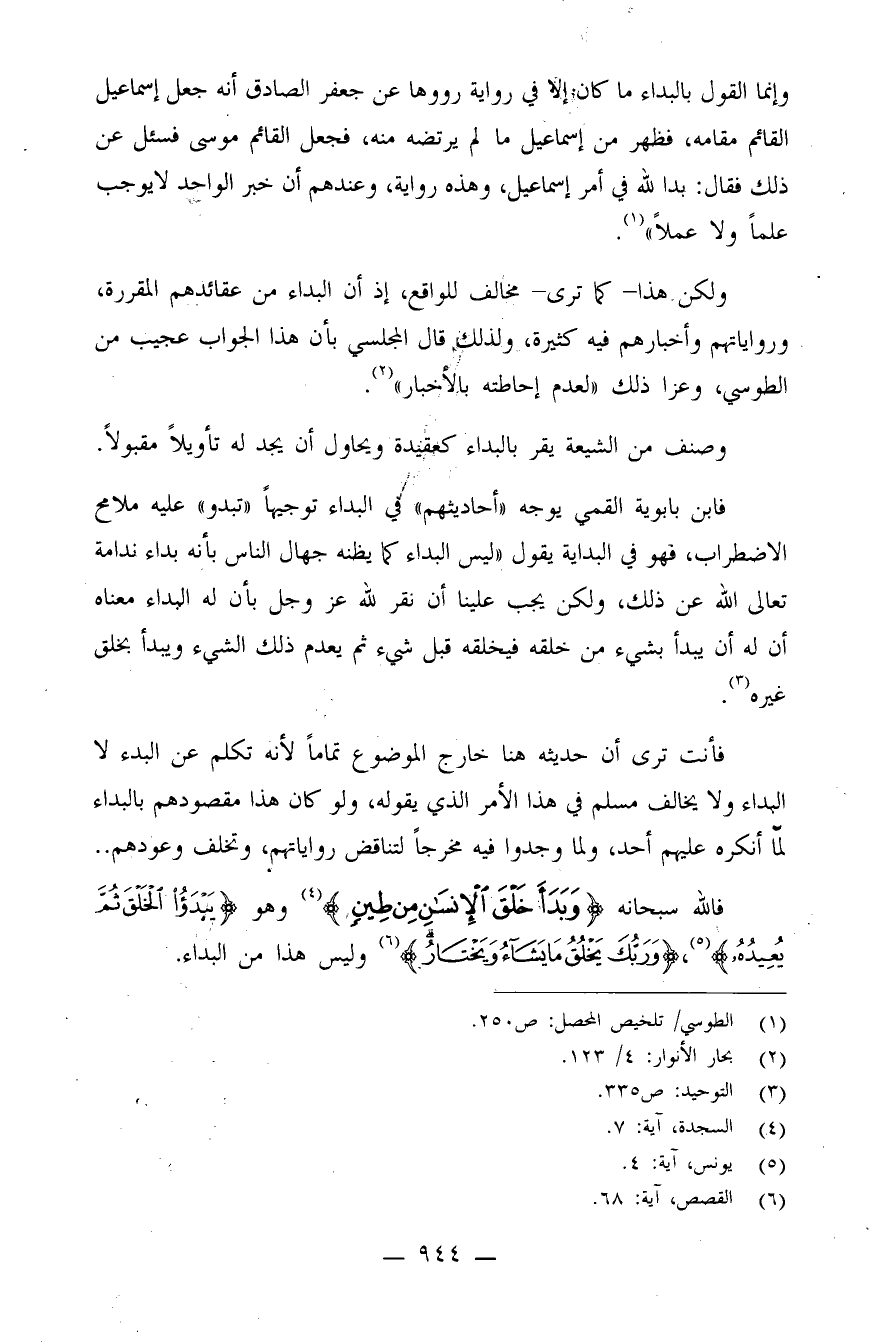 وإنما القول بالبداء ما كان إلّا في رواية رووها عن جعفر الصادق أنه جعل إسماعيل
القائم مقامه، فظهر من إسماعيل ما لم يرتضه منه، فجعل القائم موسى فسئل عن
ذلك فقال: بدا لله في أمر إسماعيل، وهذه رواية، وعندهم أن خبر الواحد لايوجب
علماً ولا عملاً»(١).
ولكن هذا– كما ترى– مخالف للواقع، إذ أن البداء من عقائدهم المقررة،
ورواياتهم وأخبارهم فيه كثيرة، ولذلك قال المجلسي بأن هذا الجواب عجيب من
الطوسي، وعزا ذلك «لعدم إحاطته بالأخبار»(٢).
وصنف من الشيعة يقر بالبداء كعقيدة ويحاول أن يجد له تأويلاً مقبولاً.
فابن بابوية القمي يوجه «أحاديثهم» في البداء توجيهاً «تبدو» عليه ملامح
الاضطراب، فهو في البداية يقول «ليس البداء كما يظنه جهال الناس بأنه بداء ندامة
تعالى الله عن ذلك، ولكن يجب علينا أن نقر لله عز وجل بأن له البداء معناه
أن له أن يبدأ بشيء من خلقه فيخلقه قبل شيء ثم يعدم ذلك الشيء ويبدأ بخلق
غيره(٣).
فأنت ترى أن حديثه هنا خارج الموضوع تماماً لأنه تكلم عن البدء لا
البداء ولا يخالف مسلم في هذا الأمر الذي يقوله، ولو كان هذا مقصودهم بالبداء
لمّا أنكره عليهم أحد، ولما وجدوا فيه مخرجاً لتناقض رواياتهم، وتخلف وعودهم..
فالله سبحانه ﴿وَبَدَأَ خَلْقَ ٱلْإِنسَٰنِ مِن طِينٍ﴾(٤) وهو ﴿يَبْدَؤُا۟ ٱلْخَلْقَ ثُمَّ
يُعِيدُهُۥ﴾(٥)، ﴿وَرَبُّكَ يَخْلُقُ مَا يَشَآءُ وَيَخْتَارُ﴾(٦) وليس هذا من البداء.
(١) الطوسي/ تلخيص المحصل: ص٢٥٠.
(٢) بحار الأنوار: ٤/ ١٢٣.
(٣) التوحيد: ص٣٣٥.
(٤) السجدة، آية: ٧.
(٥) يونس، آية: ٤.
(٦) القصص، آية: ٦٨.
— ٩٤٤ —